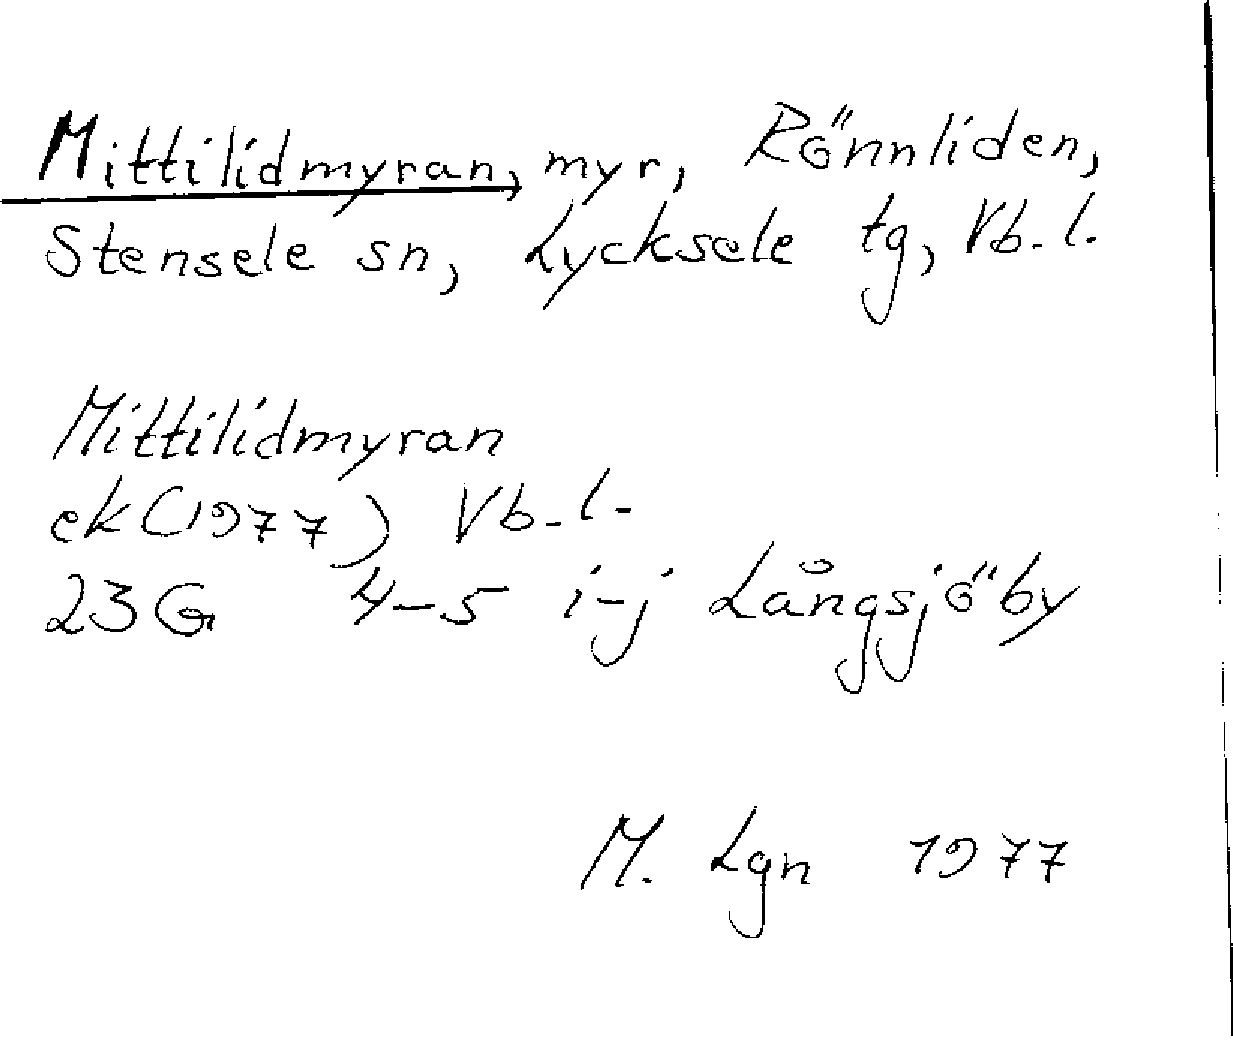 Mittilidmyran, myr, Rönnliden,
Stensele sn, Lycksele tg, Vb. l.
Mittilidmyran
ek (1977) Vb. l.
23G 4-5 i-j Långsjöby
M. Lgn 1977